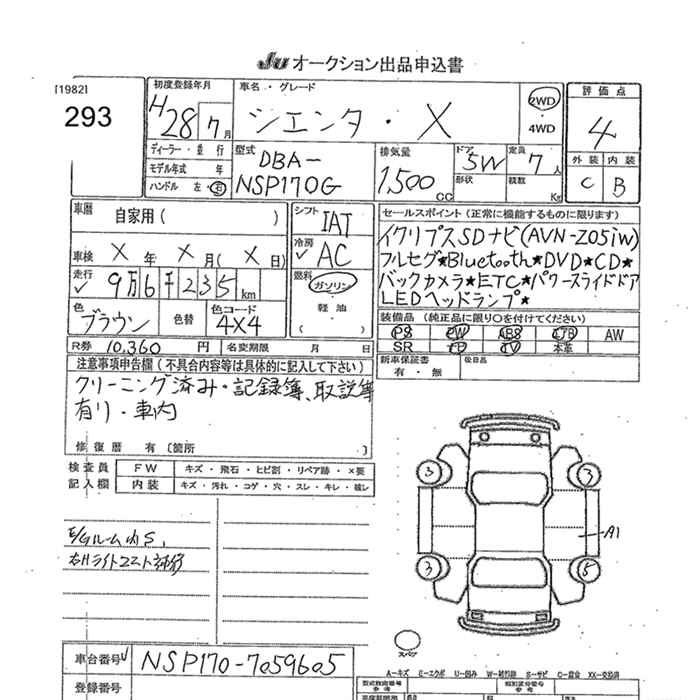 Ju オークション出品申込書
[1982]
293
初度登録年月
H28 7月
車名・グレード
シエンタ・X
2WD
・
4WD
評価点
4
ディーラー・並行
モデル年式 年
ハンドル 左・右
型式
DBA-
NSP170G
排気量
1,500 CC
ドア 5W
形状
定員 7人
積載 Kg
外装 内装
C B
車暦
自家用( )
シフト
IAT
冷房
AC
車検 X年 X月(X日)
走行
9万6千235km
燃料
ガソリン
・
軽油
( )
色
ブラウン
色替
色コード
4X4
セールスポイント(正常に機能するものに限ります)
イクリプスSDナビ(AVN-Z05iW)
フルセグ★Bluetooth★DVD★CD★
バックカメラ★ETC★パワースライドドア
LEDヘッドランプ★
装備品(純正品に限り○を付けてください)
PS PW ABS AW
SR TV 本革
R券 10,360円 名変期限 月 日
新車保証書
有・無
後日品
注意事項申告欄(不具合内容等は具体的に記入して下さい)
クリーニング済み・記録簿、取説等
有り・車内
修復歴 有〔箇所 〕
検査員
記入欄
FW キズ・飛石・ヒビ割・リペア跡・X要
内装 キズ・汚れ・コゲ・穴・スレ・キレ・破レ
E/Gルーム内S,
3 3
A1
3 5
スペア
車台番号 NSP170-7059605
登録番号
A-キズ E-エクボ U-凹み W-補修跡 S-サビ C-腐食 XX-交換済
型式指定番号
類別区分番号